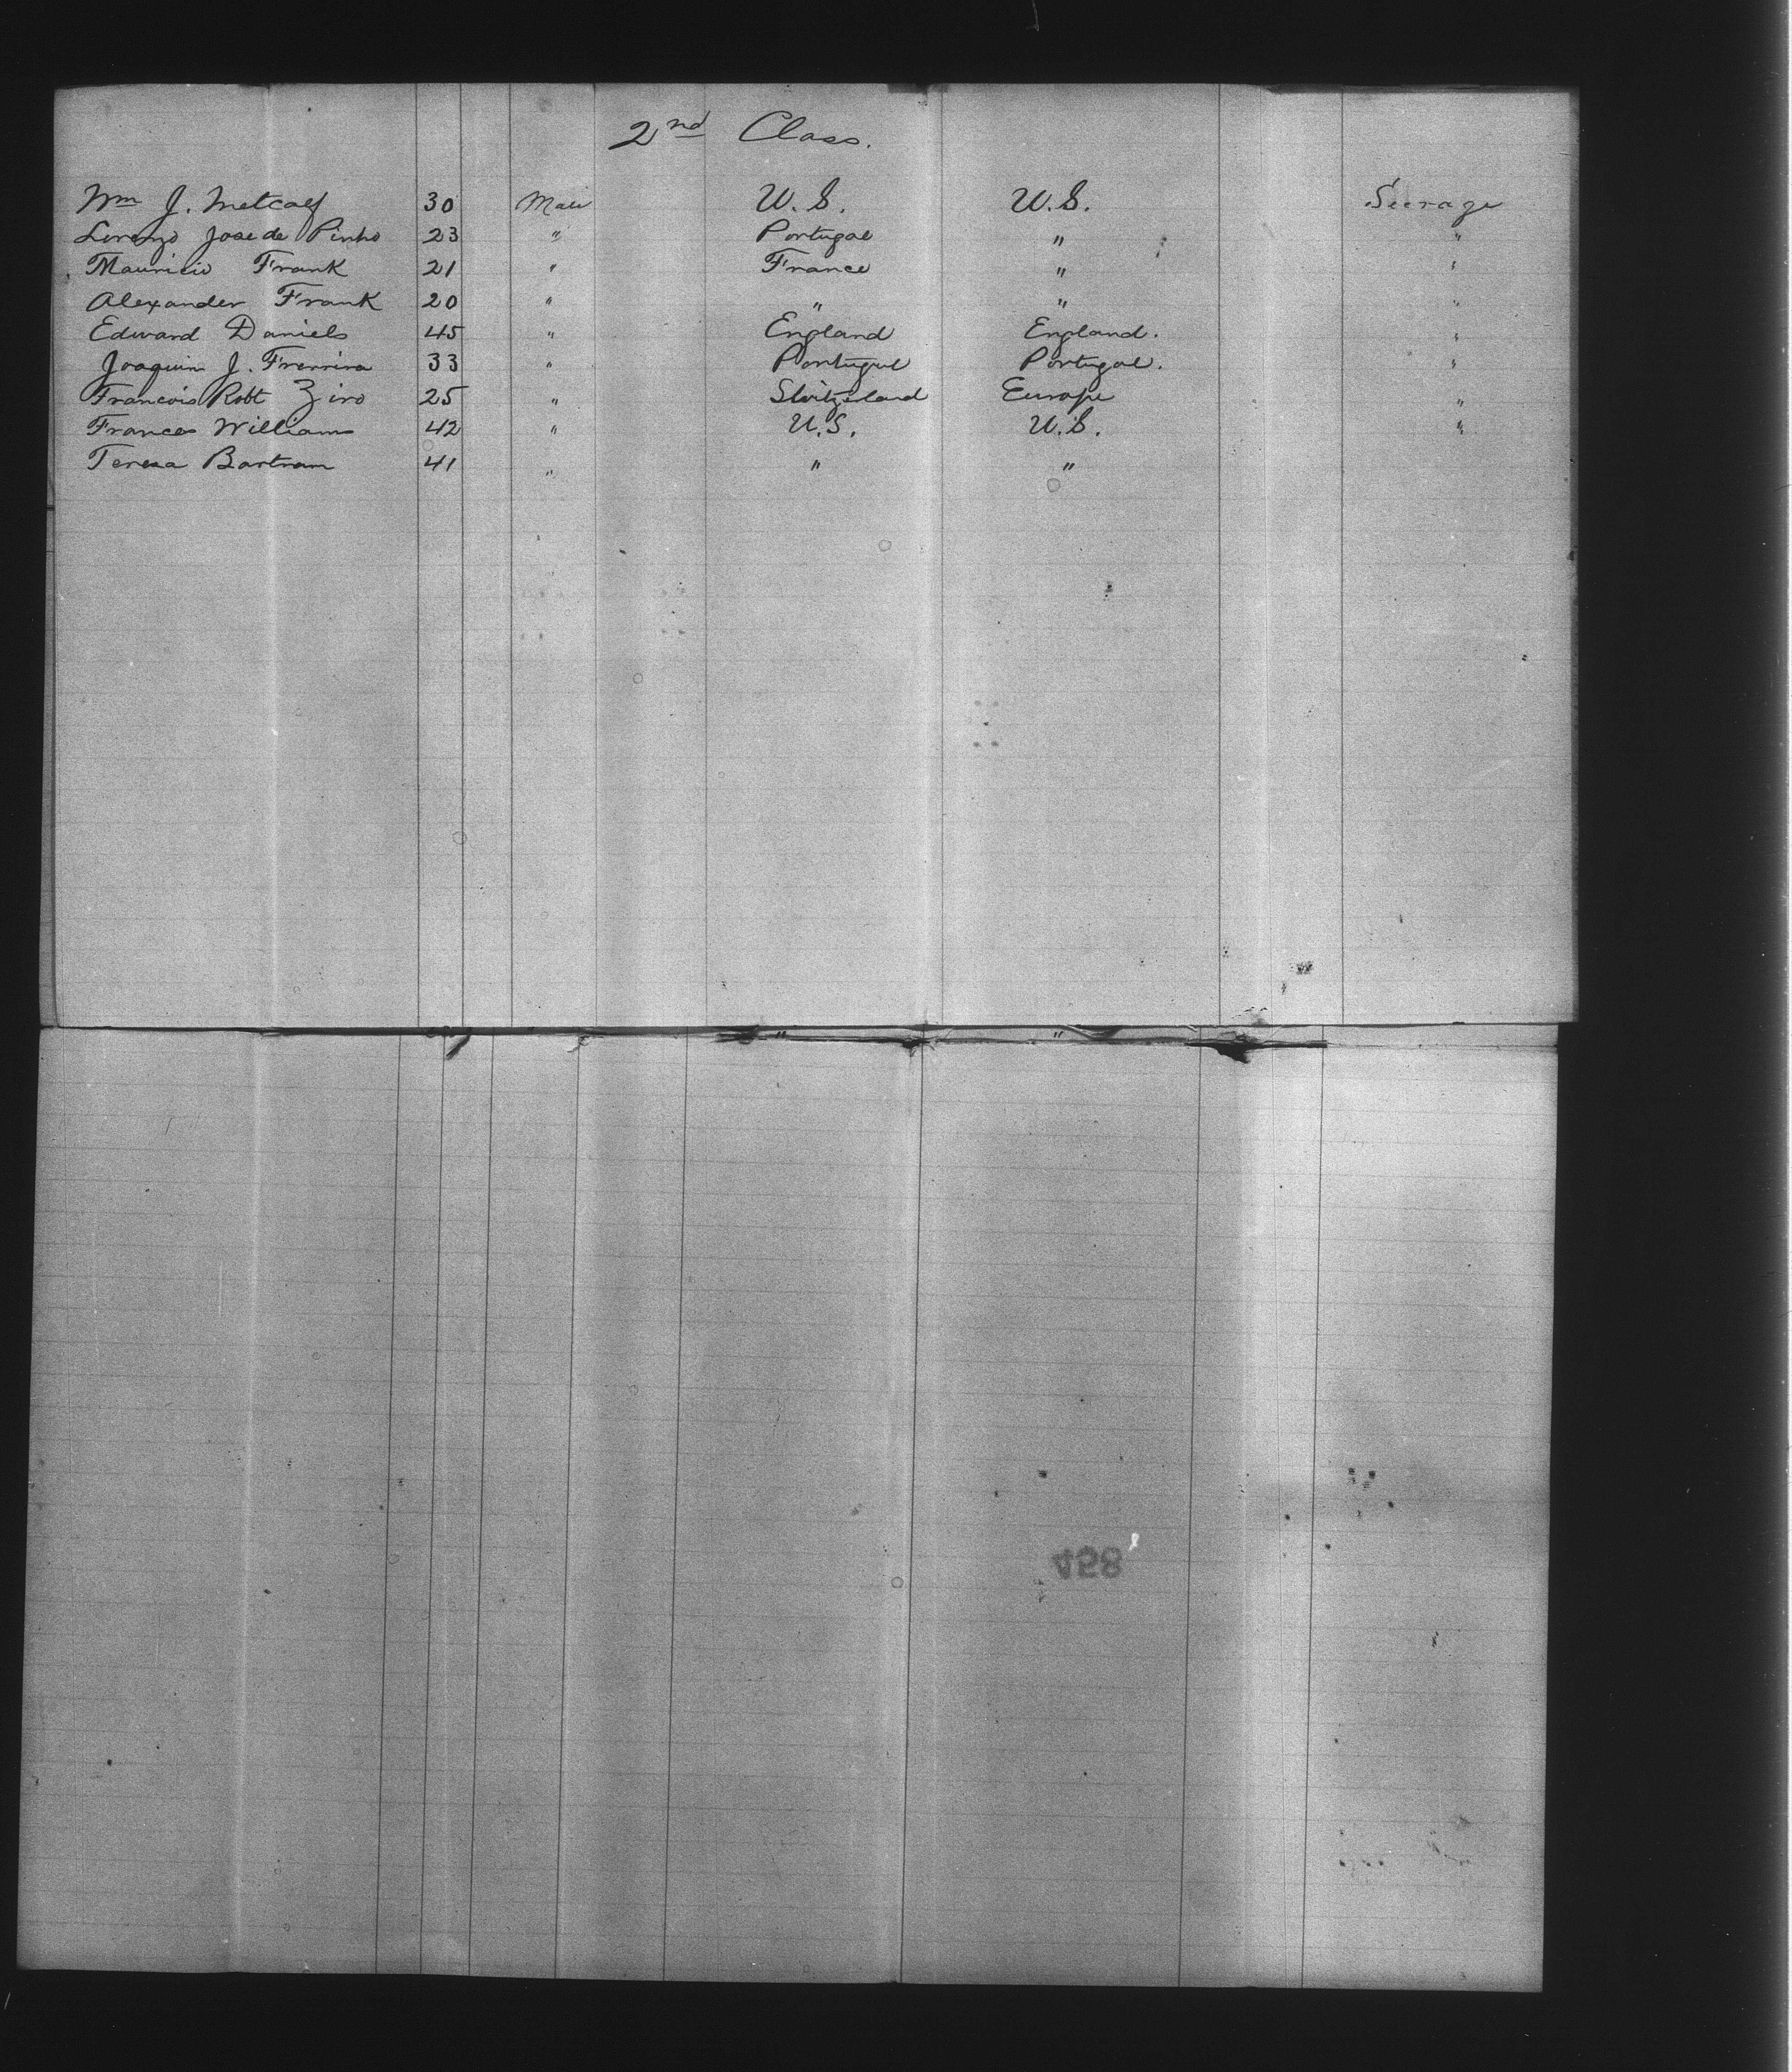 2nd Class.
Wm J. Metcalf 30 Male U.S. U.S. Steerage
Lorenzo Jose de Pinho 23 " Portugal " "
Mauricio Frank 21 " France " "
Alexander Frank 20 " " " "
Edward Daniels 45 " England England. "
Joaquin J. Frerrira 33 " Portugal Portugal. "
Francois Robt Ziro 25 " Switzerland Europe "
Frances Williams 42 " U.S. U.S. "
Teresa Bartram 41 " " "
" "
458